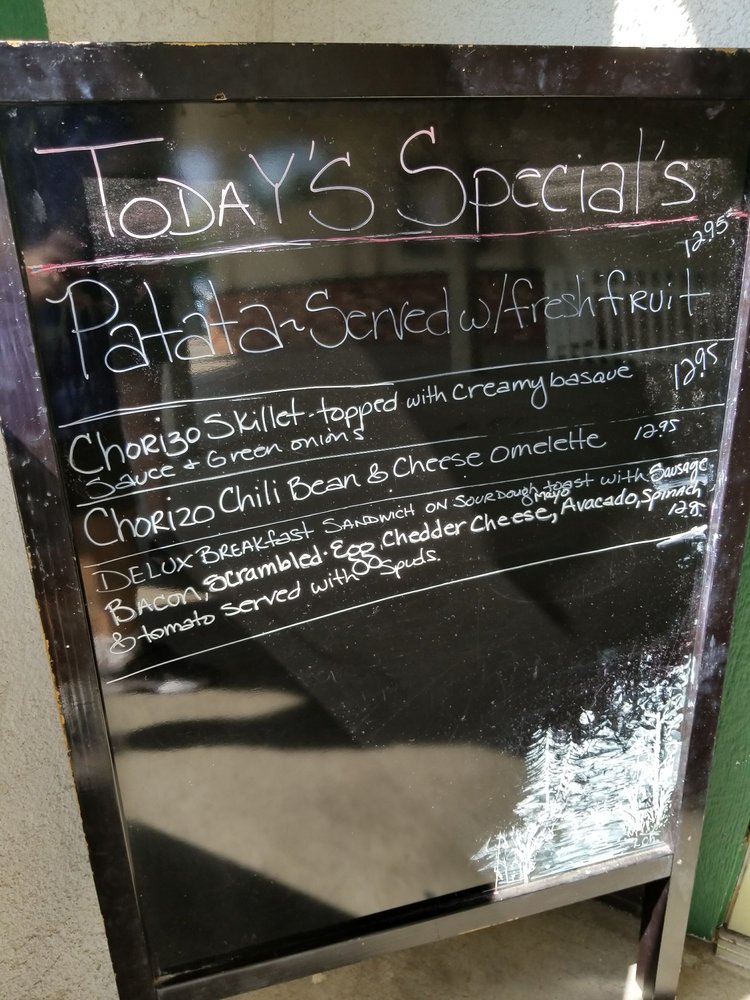 TODAY'S Special's
12.95
Patata~Served w/fresh fruit
Chorizo Skillet-topped with Creamy basque 12.95
Sauce & Green onions
Chorizo Chili Bean & Cheese omelette 12.95
DELUX BREAKfast SANDWICH ON SOURDOugh toast with Sausage
& Mayo
BACON, Scrambled Egg, Chedder Cheese, Avacado, Spinach
& tomato served with Spuds.